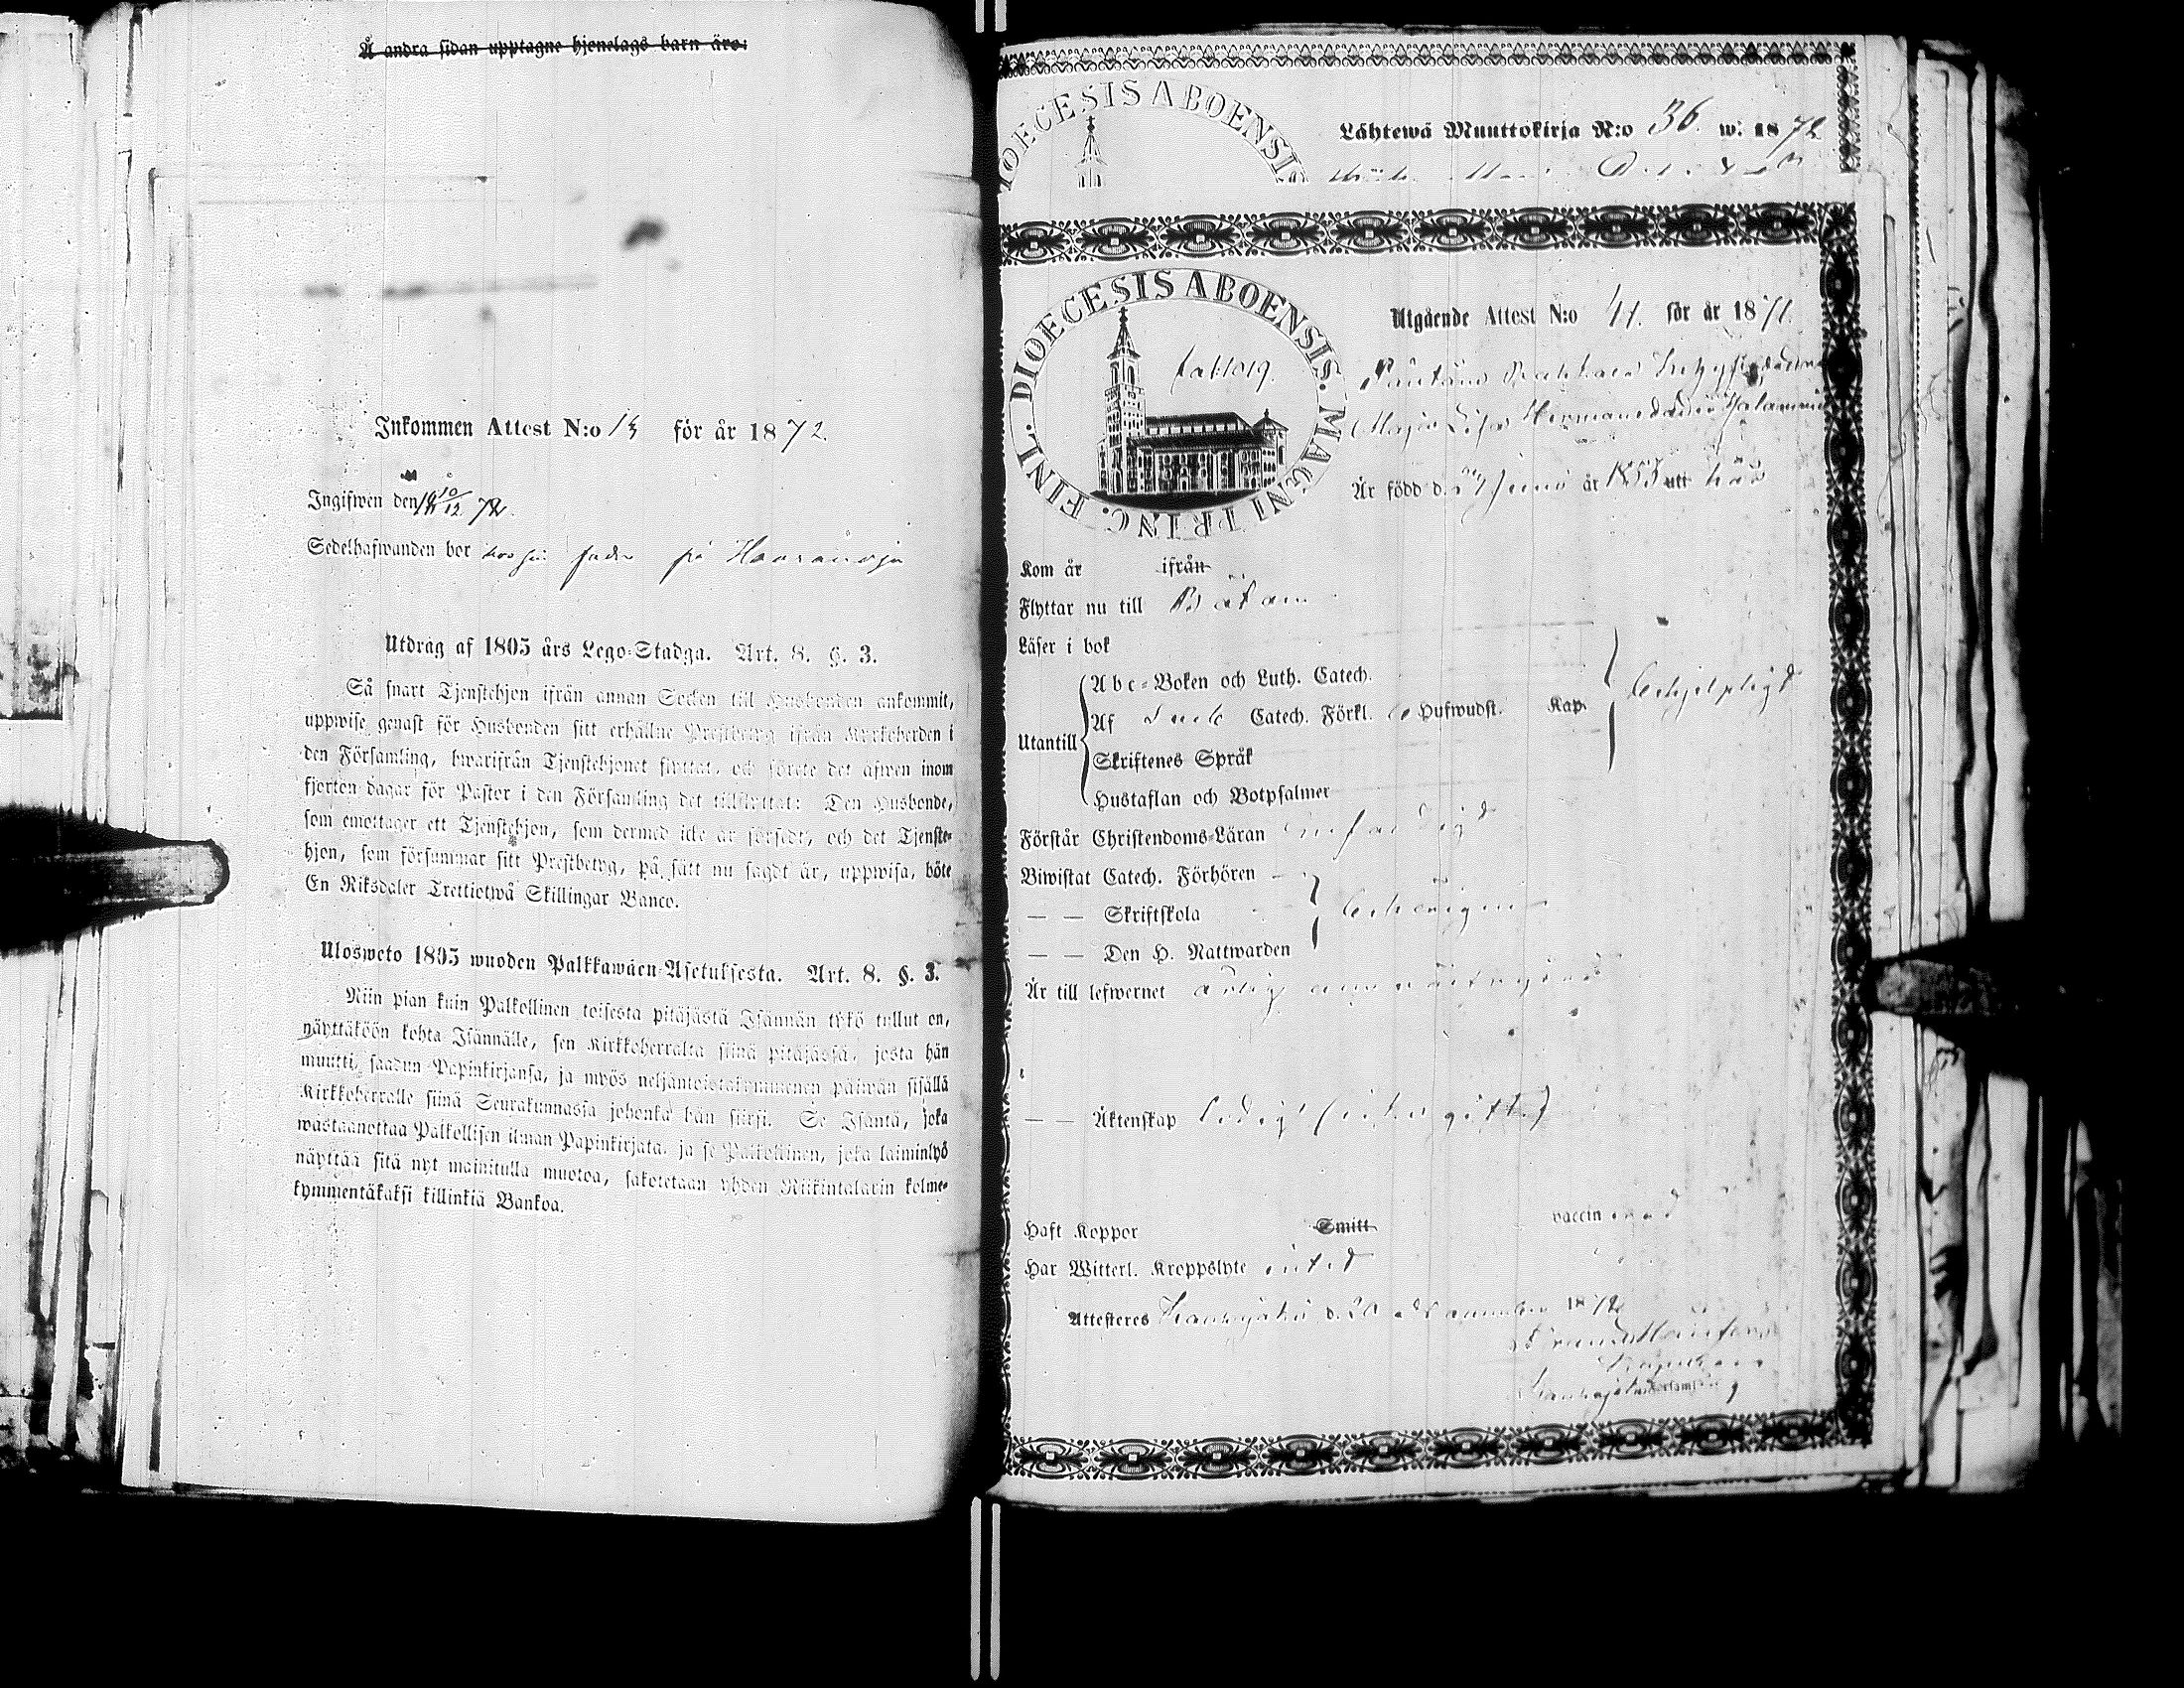 Å andra sidan upptagne hjonelags barn äro:
Inkommen Attest N:o 13 för år 1872.
Ingifwen den 10/12 72.
Sedelhafwanden bor hos sin fader på
Utdrag af 1805 års Lego-Stadga. Art. 8. §. 3.
Så snart Tjenstehjon ifrån annan Socken till Husbonden ankommit,
uppwise genast för Husbonden sitt erhållne Prestbetyg ifrån Kyrkoherden i
den Församling, hwarifrån Tjenstehjonet flyttat, och förete det äfwen inom
fjorton dagar för Pastor i den Församling det tillflyttat: Den Husbonde,
som emottager ett Tjenstehjon, som dermed icke är försedt, och det Tjenste-
hjon, som försummar sitt Prestbetyg, på sätt nu sagdt är, uppwisa, böte
En Riksdaler Trettiotwå Skillingar Banco.
Ulosweto 1805 wuoden Palkkawäen-Asetuksesta. Art. 8. §. 3.
Niin pian kuin Palkollinen toisesta pitäjästä Isännän tykö tullut on,
näyttäköön kohta Isännälle, sen Kirkkoherralta siinä pitäjässä, josta hän
muutti, saadun Papinkirjansa, ja myös neljäntoistakymmenen päiwän sisällä
Kirkkoherralle siinä Seurakunnassa johonka hän siirsi. Se Isäntä, joka
wastaanottaa Palkollisen ilman Papinkirjata, ja se Palkollinen, joka laiminlyö
näyttää sitä nyt mainitulla muotoa, sakotetaan yhden Riikintalarin kolme-
kymmentäkaksi killinkiä Bankoa.
DIOECESIS ABOENSIS
Lähtewä Muuttokirja N:o 36. w. 1872
DIOECESIS ABOENSIS. MAGNI PRINC. FINL.
Utgående Attest N:o 41. för år 1871.
Maja Lisa Hermansdotter
Är född d. 27 Juni år 1853 utt
Kom år ifrån
Flyttar nu till Bötom
Läser i bok
Abc-Boken och Luth. Catech.
Utantill Af Catech. Förkl. Hufwudst. Kap. behjelpligt
Skriftenes Språk
Hustaflan och Botpsalmer
Förstår Christendoms-Läran enfaldigt
Biwistat Catech. Förhören
— — Skriftskola behörigen
— — Den H. Nattwarden
Är till lefwernet ärlig
— — Äktenskap ledig (icke gift.)
Haft Koppor Smitt vaccinerad
Har Witterl. Kroppslyte intet
Attesteres d. 20 1872
Församling